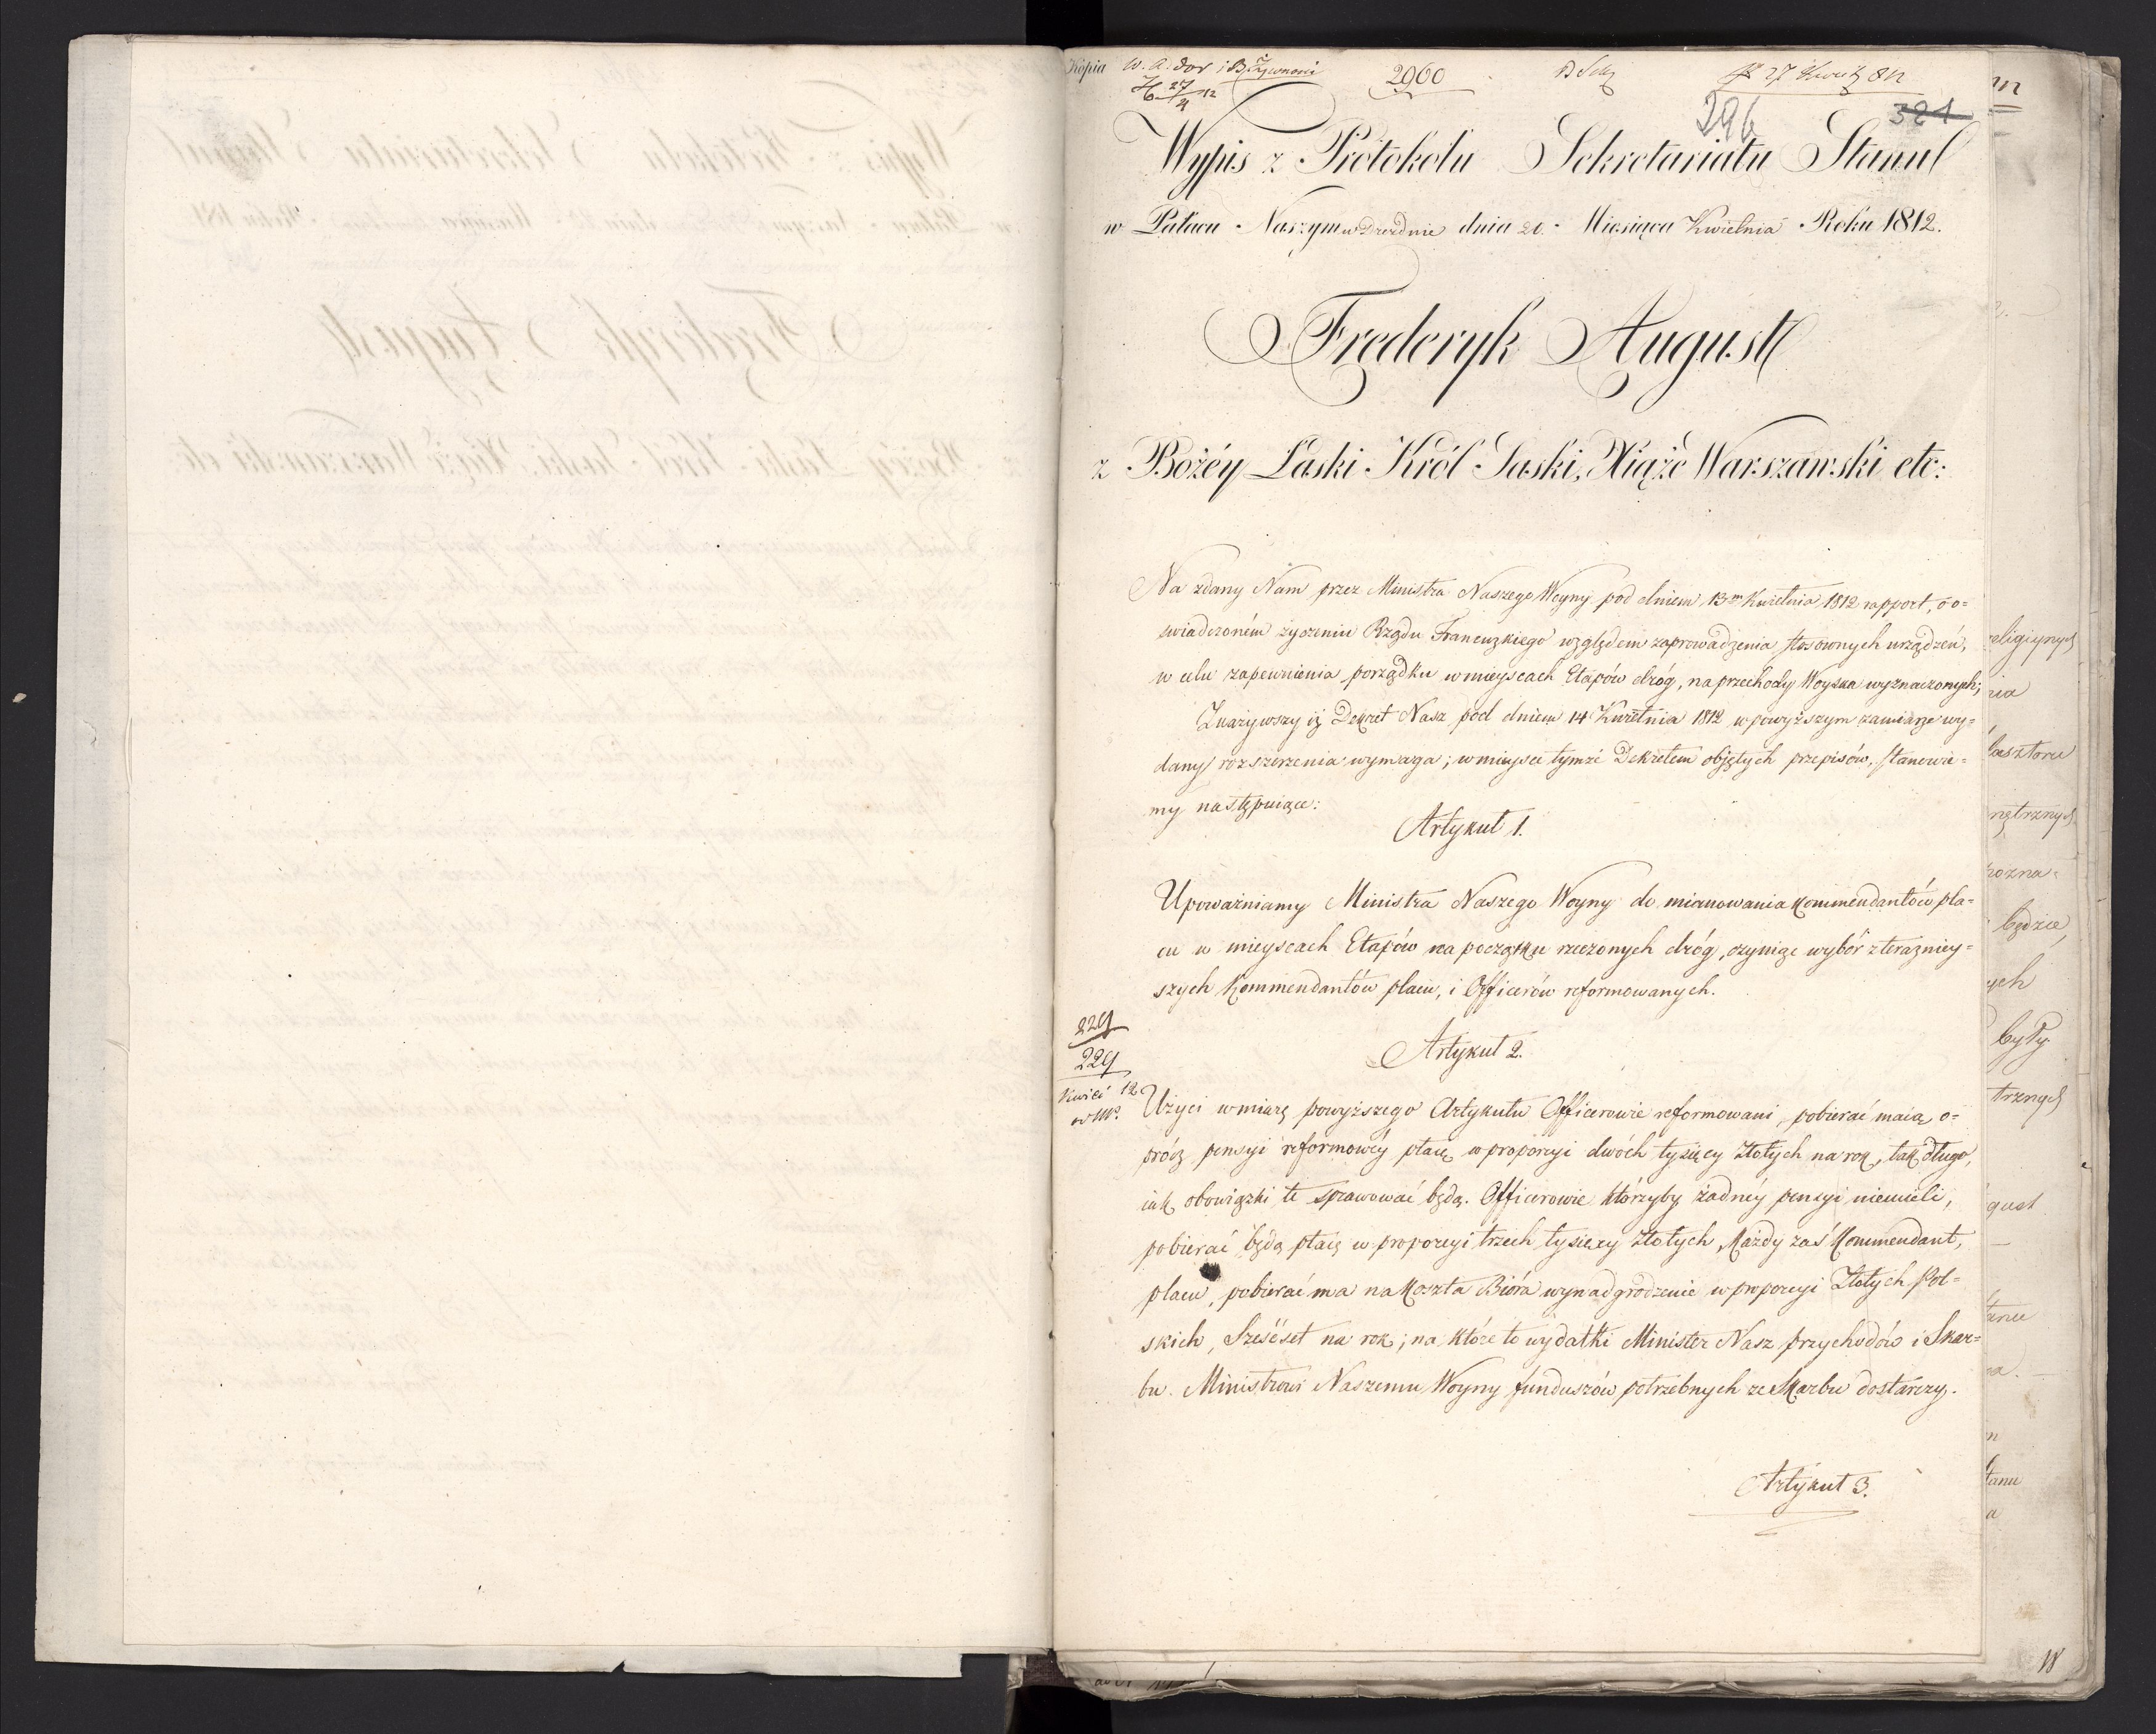 Kopia
2960
296
321
Wypis z Protokolu Sekretariatu Stanu
w Pałacu Naszym w Dreźdnie dnia 20. Miesiąca Kwietnia Roku 1812.
Frederyk August
z Bożéy Łaski Król Saski, Xiąże Warszawski etc:
Na zdany Nam przez Ministra Naszego Woyny pod dniem 13m Kwietnia 1812 rapport, o o=
świadczoném życzeniu Rządu Francuzkiego względem zaprowadzenia stosownych urządzeń,
w celu zapewnienia porządku w mieyscach Etapów dróg, na przechody Woyska wyznaczonych;
Zważywszy iż Dekret Nasz pod dniem 14 Kwietnia 1812 w powyższym zamiarze wy=
dany rozszerzenia wymaga; w mieysce tymże Dekretem objętych przepisów, stanowie=
my następuiące:
Artykuł 1.
Upoważniamy Ministra Naszego Woyny do mianowania Kommendantów pla=
cu w mieyscach Etapów na początku rzeczonych dróg, czyniąc wybór z teraznięy=
szych Kommendantów placu, i Officerów reformowanych.
229
229
Kwieć 12
Artykuł 2.
Użyci w miarę powyższego Artykułu Officerowie reformowani, pobierać maią o=
prócz pensyi reformowéy płacę w proporcyi dwóch tysięcy złotych na rok, tak długo,
iak obowiązki te sprawować będą. Officerowie którzyby żadnéy pensyi niemieli,
pobierać będą płacę w proporcyi trzech tysięcy złotych, Każdy zaś Kommendant,
placu, pobierać ma na Koszta Bióra wynadgrodzenie w proporcyi Złotych Pol=
skich, Sześćset na rok; na które to wydatki Minister Nasz Przychodów i Skar=
bu. Ministrowi Naszemu Woyny funduszów potrzebnych ze Skarbu dostarczy.
Artykuł 3.
18